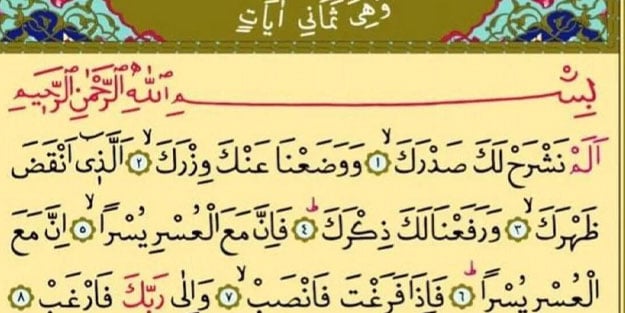 وَهِيَ ثَمَانِي اٰيَاتٍ
بِسْمِ اللّٰهِ الرَّحْمٰنِ الرَّحٖيمِ
اَلَمْ نَشْرَحْ لَكَ صَدْرَكَۙ ﴿١﴾ وَوَضَعْنَا عَنْكَ وِزْرَكَۙ ﴿٢﴾ اَلَّذٖٓي اَنْقَضَ
ظَهْرَكَۙ ﴿٣﴾ وَرَفَعْنَا لَكَ ذِكْرَكَۜ ﴿٤﴾ فَاِنَّ مَعَ الْعُسْرِ يُسْرًاۙ ﴿٥﴾ اِنَّ مَعَ
الْعُسْرِ يُسْرًاۜ ﴿٦﴾ فَاِذَا فَرَغْتَ فَانْصَبْۙ ﴿٧﴾ وَاِلٰى رَبِّكَ فَارْغَبْ ﴿٨﴾